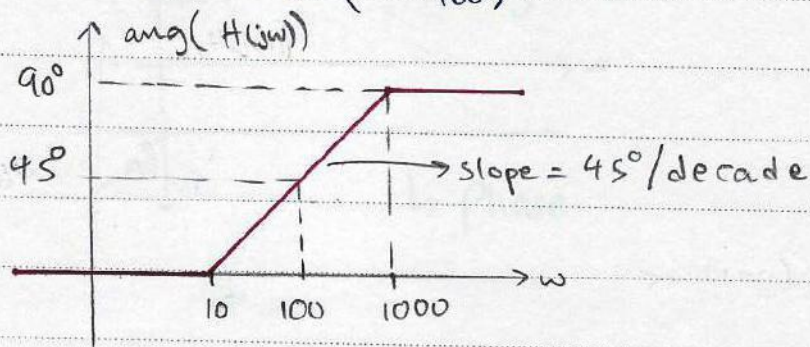 100
ang(H(jω))
90°
45°
slope = 45°/decade
10 100 1000
ω